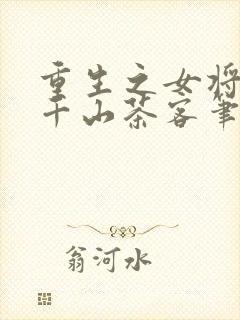 重生之女将
千山茶客筆
翁河水